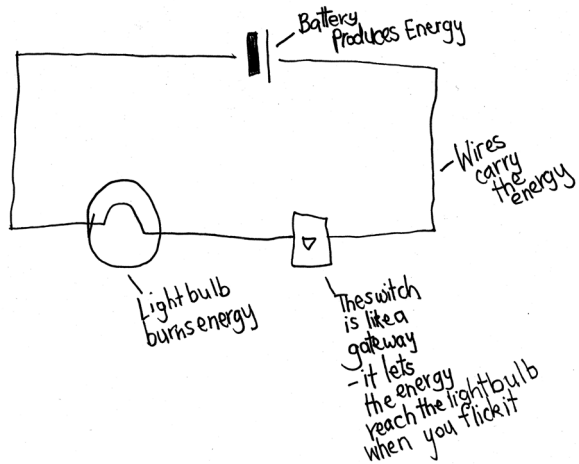 Battery
Produces Energy
Wires
carry
the
energy
Lightbulb
burns energy
The switch
is like a
gateway
- it lets
the energy
reach the lightbulb
when you flick it